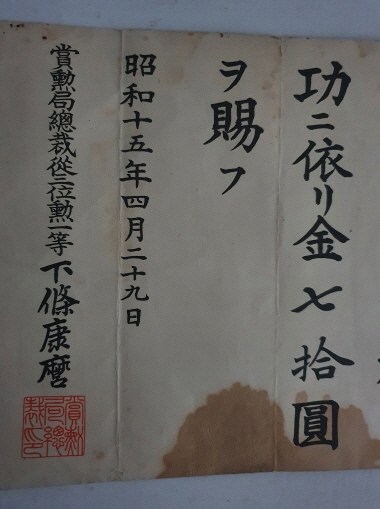 功ニ依リ金七拾圓
ヲ賜フ
昭和十五年四月二十九日
賞勲局總裁從三位勲一等下條康麿
賞勲局總裁印